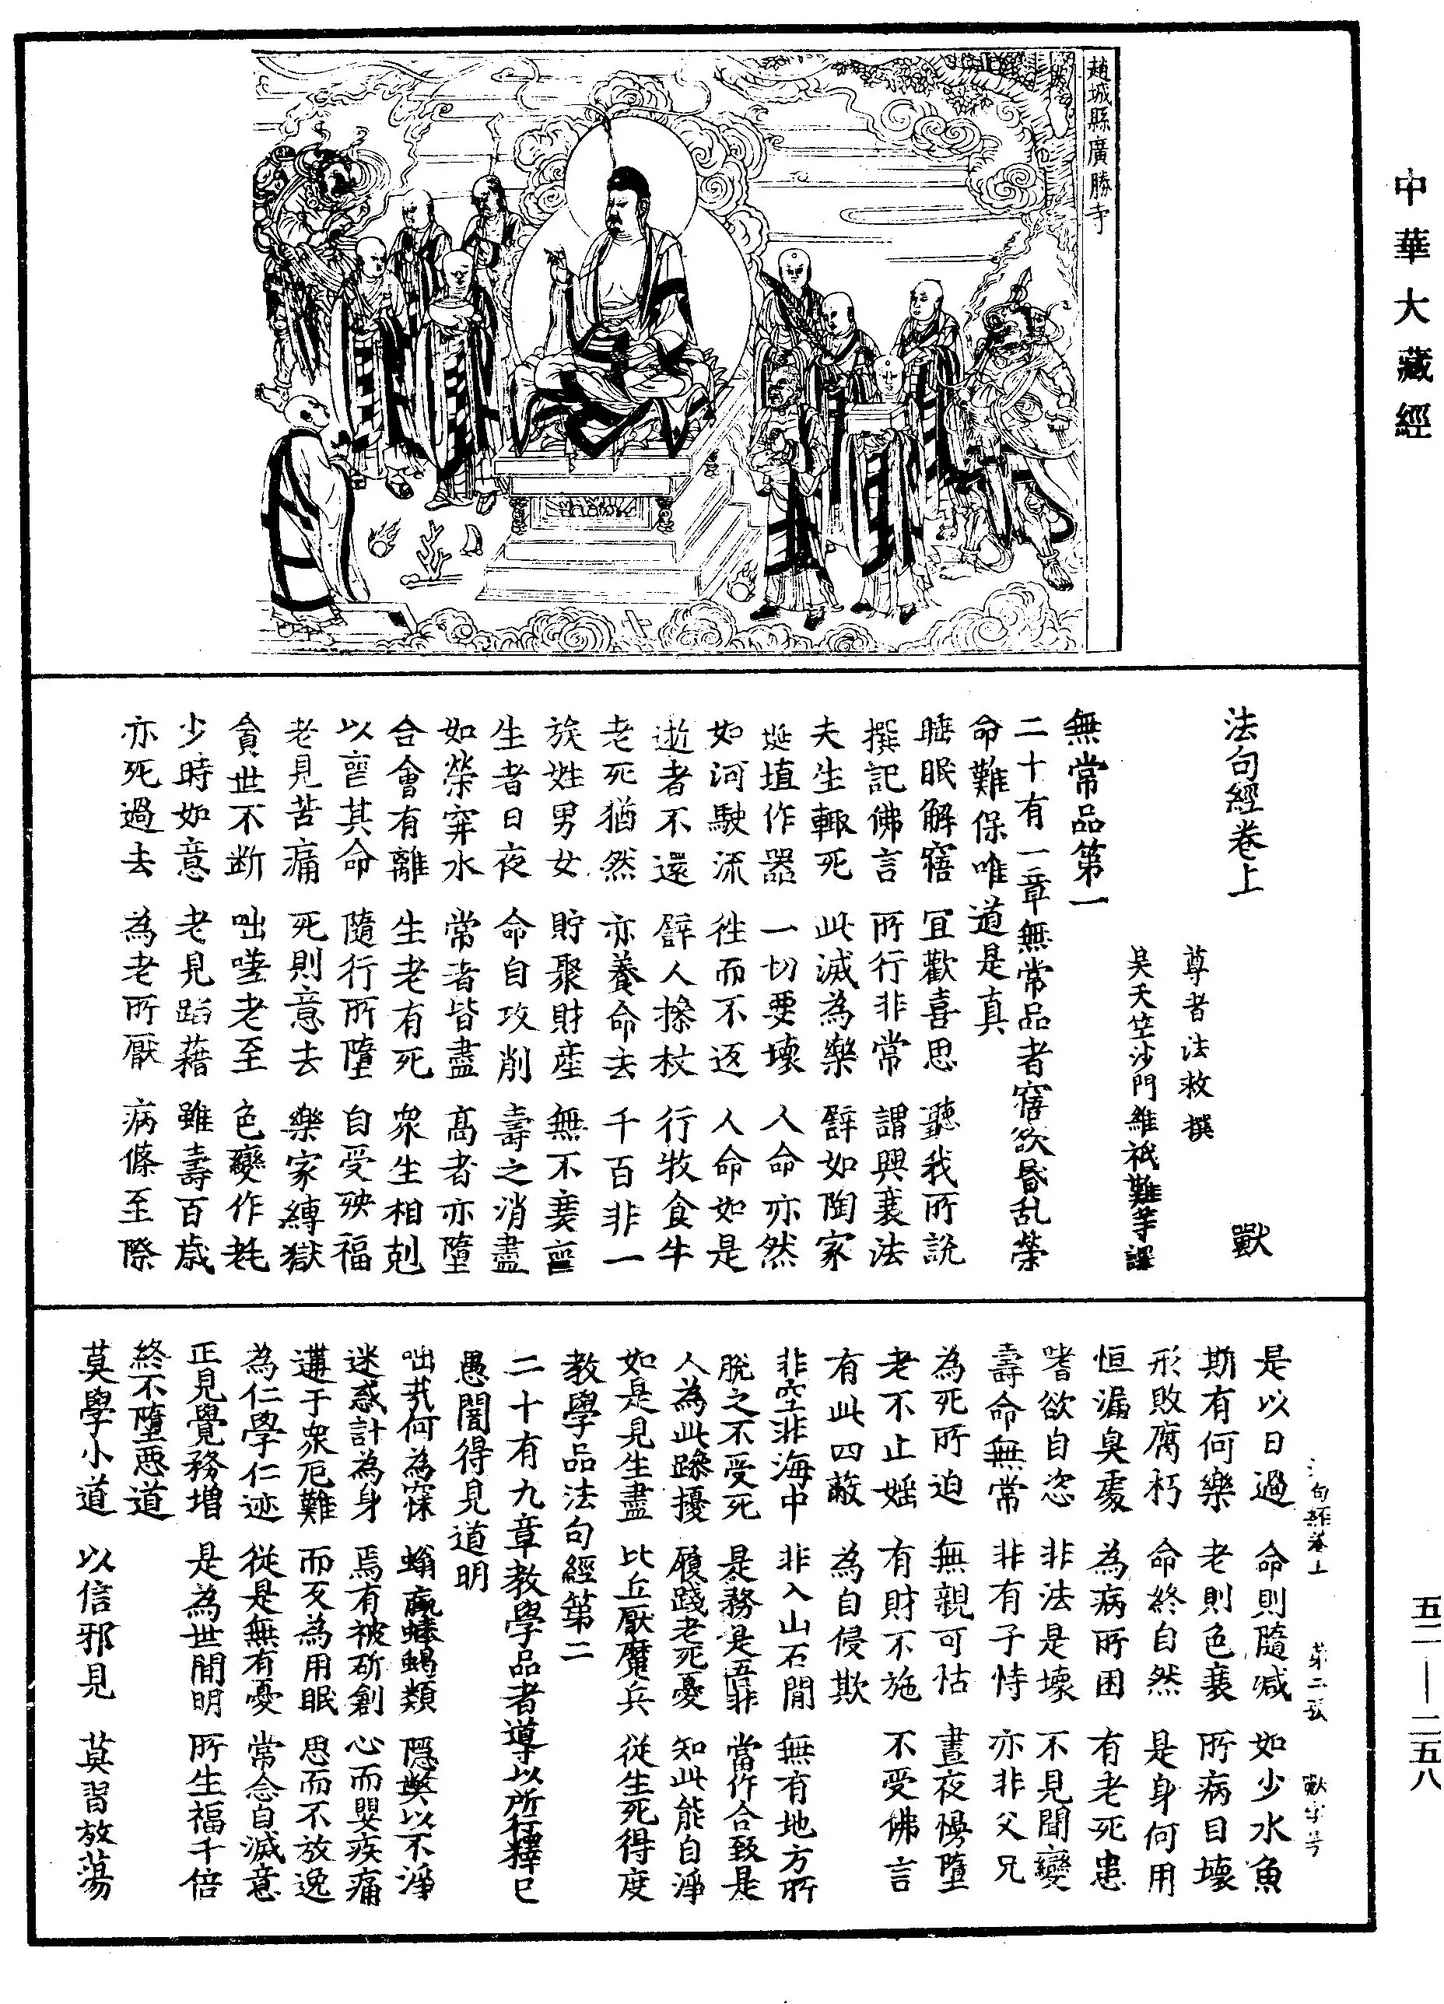 中華大藏經
趙城縣廣勝寺
法句經卷上 獸
尊者法救撰
吳天笁沙門維祇難等譯
無常品第一
二十有一章無常品者寤欲昬乱榮
命難保唯道是真
睡眠解寤 冝歡喜思 聽我所說
撰記佛言 所行非常 謂興衰法
夫生輙死 此滅為樂 譬如陶家
埏埴作器 一切要壞 人命亦然
如河駛流 徃而不返 人命如是
逝者不還 譬人操杖 行牧食牛
老死猶然 亦養命去 千百非一
族姓男女 貯聚財産 無不衰喪
生者日夜 命自攻削 壽之消盡
如榮穽水 常者皆盡 高者亦墮
合會有離 生老有死 衆生相剋
以喪其命 隨行所墮 自受殃福
老見苦痛 死則意去 樂家縛獄
貪世不断 咄嗟老至 色變作耄
少時如意 老見蹈藉 雖壽百歲
亦死過去 為老所厭 病條至際
是以日過 命則隨減 如少水魚
斯有何樂 老則色衰 所病自壞
形敗腐朽 命終自然 是身何用
恒漏臭處 為病所困 有老死患
嗜欲自恣 非法是壞 不見聞變
壽命無常 非有子恃 亦非父兄
為死所迫 無親可怙 晝夜慢墮
老不止婬 有財不施 不受佛言
有此四蔽 為自侵欺
非空非海中 非入山石間 無有地方所
脫之不受死 是務是吾非 當作合致是
人為此躁擾 履踐老死憂 知此能自淨
如是見生盡 比丘厭魔兵 從生死得度
教學品法句經第二
二十有九章教學品者導以所行釋巳
愚闇得見道明
咄㢤何為寐 螉螺蜯蝎類 隱弊以不淨
迷惑計為身 焉有被斫創 心而嬰疾痛
遘于衆厄難 而反為用眠 思而不放逸
為仁學仁迹 從是無有憂 常念自滅意
正見覺務增 是為世間明 所生福千倍
終不墮惡道
莫學小道 以信邪見 莫習放蕩
句經卷上 第二張 獸字号
五二—二五八